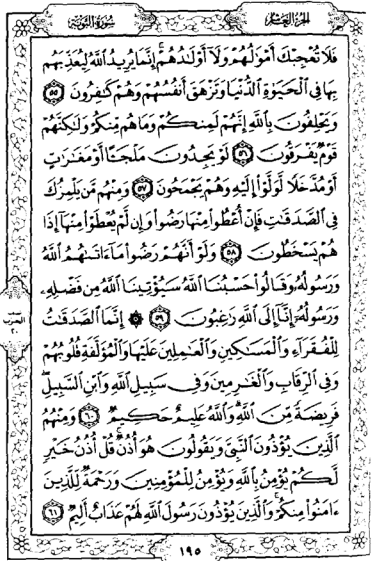 الجزء العاشر
سورة التوبة
فَلَا تُعْجِبْكَ أَمْوَٰلُهُمْ وَلَآ أَوْلَٰدُهُمْ ۚ إِنَّمَا يُرِيدُ ٱللَّهُ لِيُعَذِّبَهُم
بِهَا فِى ٱلْحَيَوٰةِ ٱلدُّنْيَا وَتَزْهَقَ أَنفُسُهُمْ وَهُمْ كَٰفِرُونَ ٥٥
وَيَحْلِفُونَ بِٱللَّهِ إِنَّهُمْ لَمِنكُمْ وَمَا هُم مِّنكُمْ وَلَٰكِنَّهُمْ
قَوْمٌ يَفْرَقُونَ ٥٦ لَوْ يَجِدُونَ مَلْجَـًٔا أَوْ مَغَٰرَٰتٍ
أَوْ مُدَّخَلًا لَّوَلَّوْا۟ إِلَيْهِ وَهُمْ يَجْمَحُونَ ٥٧ وَمِنْهُم مَّن يَلْمِزُكَ
فِى ٱلصَّدَقَٰتِ فَإِنْ أُعْطُوا۟ مِنْهَا رَضُوا۟ وَإِن لَّمْ يُعْطَوْا۟ مِنْهَآ إِذَا
هُمْ يَسْخَطُونَ ٥٨ وَلَوْ أَنَّهُمْ رَضُوا۟ مَآ ءَاتَىٰهُمُ ٱللَّهُ
وَرَسُولُهُۥ وَقَالُوا۟ حَسْبُنَا ٱللَّهُ سَيُؤْتِينَا ٱللَّهُ مِن فَضْلِهِۦ
وَرَسُولُهُۥٓ إِنَّآ إِلَى ٱللَّهِ رَٰغِبُونَ ٥٩ ۞ إِنَّمَا ٱلصَّدَقَٰتُ
لِلْفُقَرَآءِ وَٱلْمَسَٰكِينِ وَٱلْعَٰمِلِينَ عَلَيْهَا وَٱلْمُؤَلَّفَةِ قُلُوبُهُمْ
وَفِى ٱلرِّقَابِ وَٱلْغَٰرِمِينَ وَفِى سَبِيلِ ٱللَّهِ وَٱبْنِ ٱلسَّبِيلِ ۖ
فَرِيضَةً مِّنَ ٱللَّهِ ۗ وَٱللَّهُ عَلِيمٌ حَكِيمٌ ٦٠ وَمِنْهُمُ
ٱلَّذِينَ يُؤْذُونَ ٱلنَّبِىَّ وَيَقُولُونَ هُوَ أُذُنٌ ۚ قُلْ أُذُنُ خَيْرٍ
لَّكُمْ يُؤْمِنُ بِٱللَّهِ وَيُؤْمِنُ لِلْمُؤْمِنِينَ وَرَحْمَةٌ لِّلَّذِينَ
ءَامَنُوا۟ مِنكُمْ ۚ وَٱلَّذِينَ يُؤْذُونَ رَسُولَ ٱللَّهِ لَهُمْ عَذَابٌ أَلِيمٌ ٦١
١٩٥